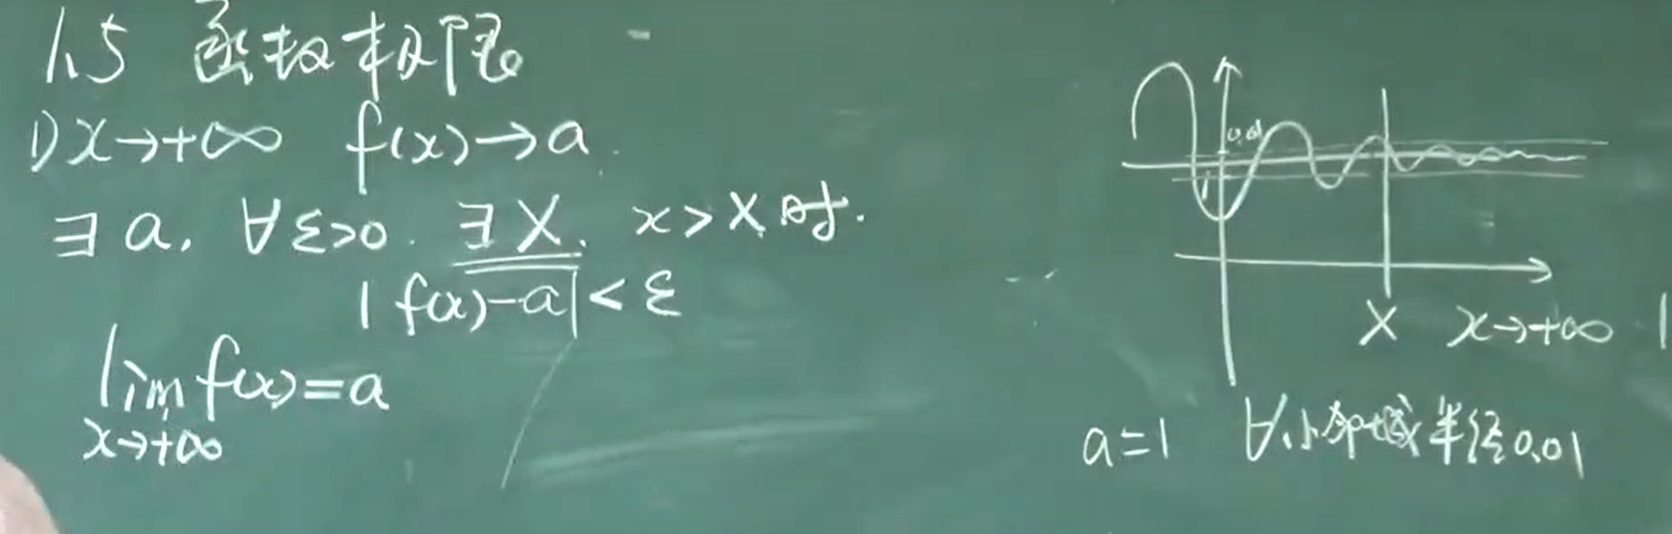 1.5 函数极限
1) x→+∞ f(x)→a.
∃ a. ∀ε>0. ∃X. x>X时.
|f(x)-a|<ε
lim f(x)=a
x→+∞
0.01
1
X x→+∞
a=1 ∀小邻域半径0.01